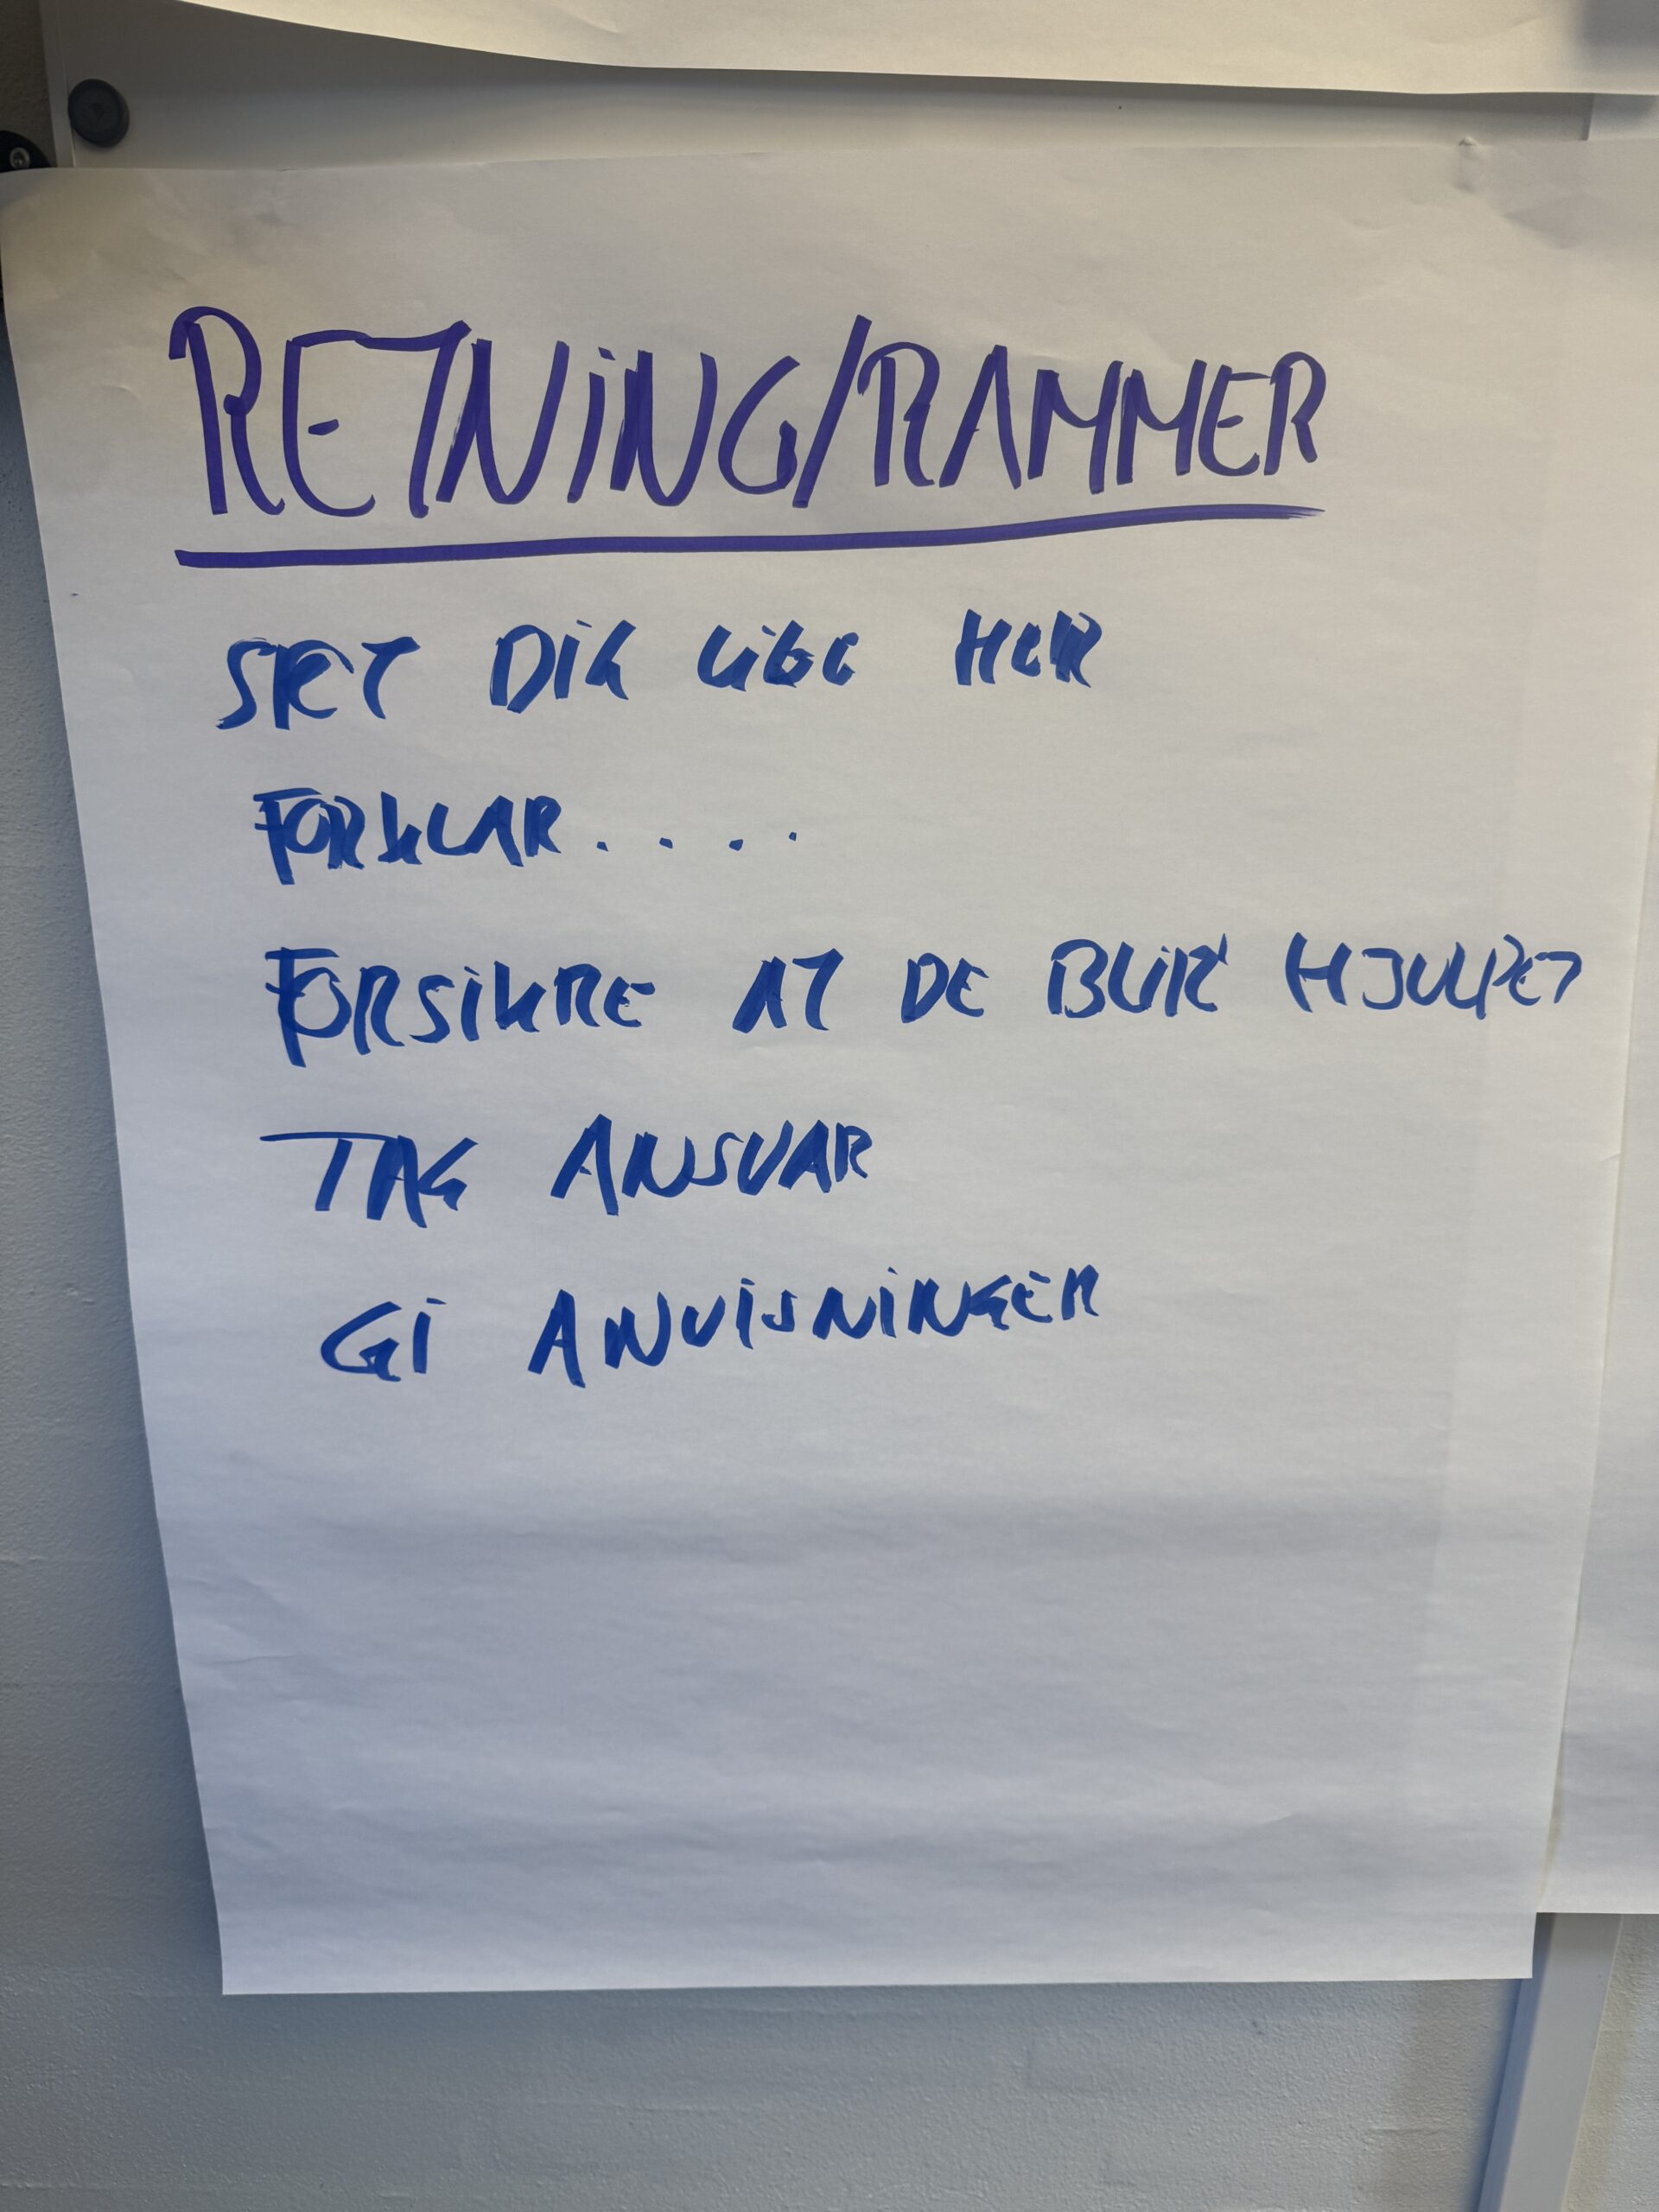 RETNING/RAMMER
SÆT DIG LIGE HER
FORKLAR....
FORSIKRE AT DE BLIR' HJULPET
TAG ANSVAR
GI ANVISNINGER